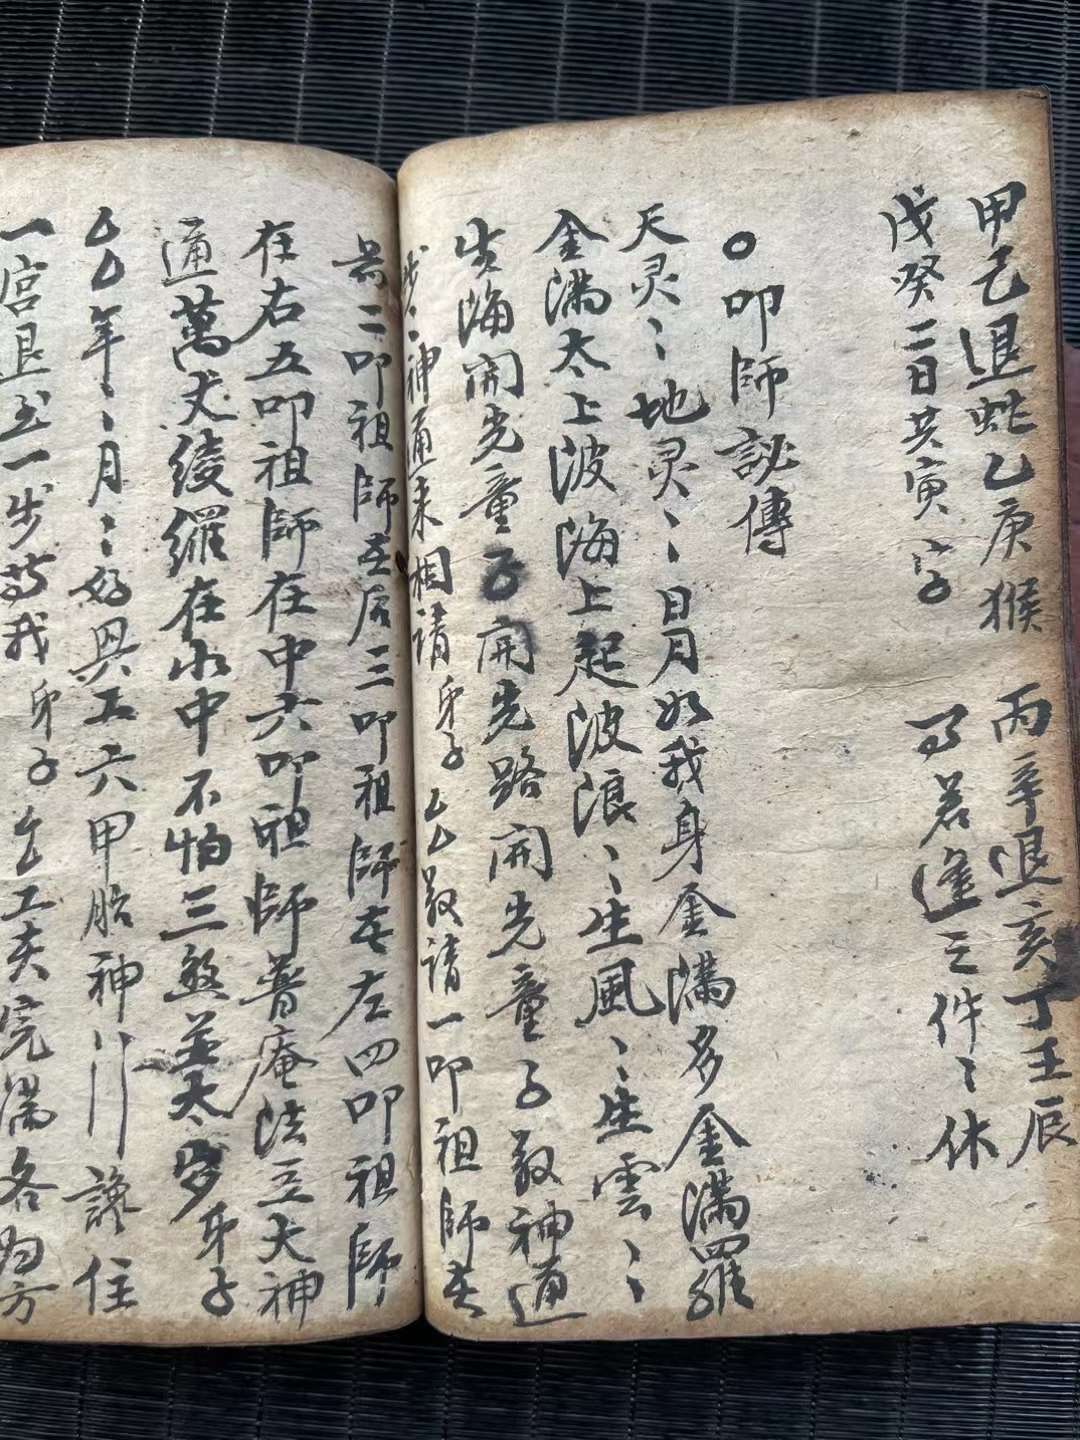 甲己退蛇乙庚猴 丙辛退亥丁壬辰
戊癸二日共寅字 若逢三件〻休
○叩師訣傳
天灵〻地灵〻日月如我身金滿多金滿羅
金滿太上波海上起波浪〻生風〻生雲〻
海開光童子開光路開光童子教神通
步〻神通来相請弟子厶敬請一叩祖師在
前二叩祖師在后三叩祖師在左四叩祖師
在右五叩祖師在中六叩祖師普庵法立大神
通萬丈綾羅在水中不怕三煞並太岁弟子
厶年〻月〻好與工六甲胎神 讒住
一宮退出一步 我弟子 工夫完滿各归方